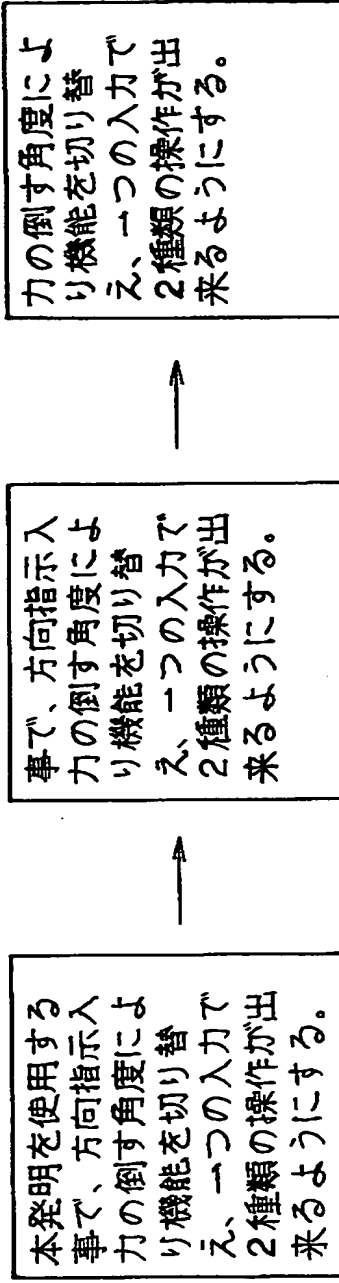 本発明を使用する
事で、方向指示入
力の倒す角度によ
り機能を切り替
え、一つの入力で
2種類の操作が出
来るようにする。
事で、方向指示入
力の倒す角度によ
り機能を切り替
え、一つの入力で
2種類の操作が出
来るようにする。
力の倒す角度によ
り機能を切り替
え、一つの入力で
2種類の操作が出
来るようにする。